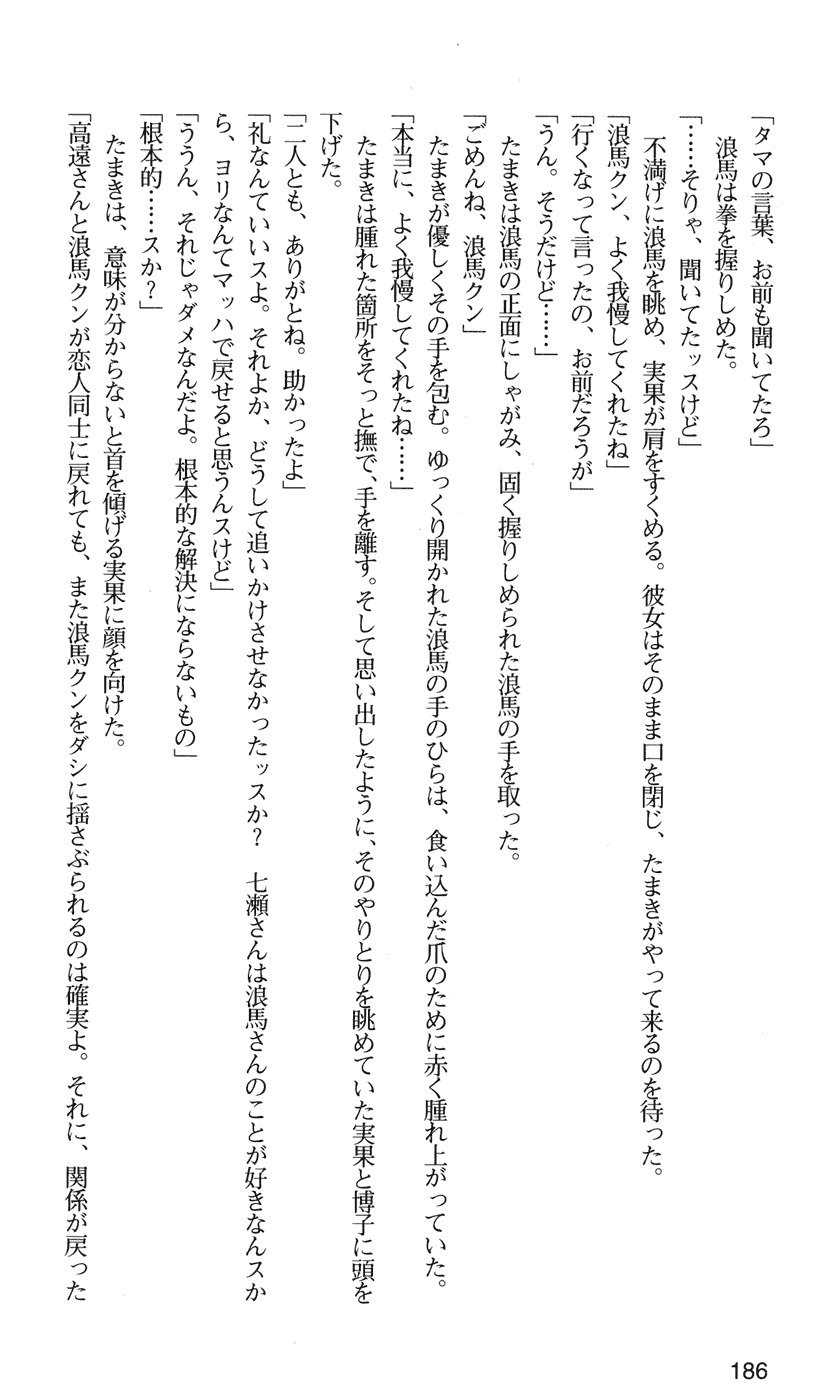 「タマの言葉、お前も聞いてたろ」
　浪馬は拳を握りしめた。
「……そりゃ、聞いてたッスけど」
　不満げに浪馬を眺め、実果が肩をすくめる。彼女はそのまま口を閉じ、たまきがやって来るのを待った。
「浪馬クン、よく我慢してくれたね」
「行くなって言ったの、お前だろうが」
「うん。そうだけど……」
　たまきは浪馬の正面にしゃがみ、固く握りしめられた浪馬の手を取った。
「ごめんね、浪馬クン」
　たまきが優しくその手を包む。ゆっくり開かれた浪馬の手のひらは、食い込んだ爪のために赤く腫れ上がっていた。
「本当に、よく我慢してくれたね……」
　たまきは腫れた箇所をそっと撫で、手を離す。そして思い出したように、そのやりとりを眺めていた実果と博子に頭を
下げた。
「二人とも、ありがとね。助かったよ」
「礼なんていいスよ。それよか、どうして追いかけさせなかったッスか？　七瀬さんは浪馬さんのことが好きなんスか
ら、ヨリなんてマッハで戻せると思うんスけど」
「ううん、それじゃダメなんだよ。根本的な解決にならないもの」
「根本的……スか？」
　たまきは、意味が分からないと首を傾げる実果に顔を向けた。
「高遠さんと浪馬クンが恋人同士に戻れても、また浪馬クンをダシに揺さぶられるのは確実よ。それに、関係が戻った
186